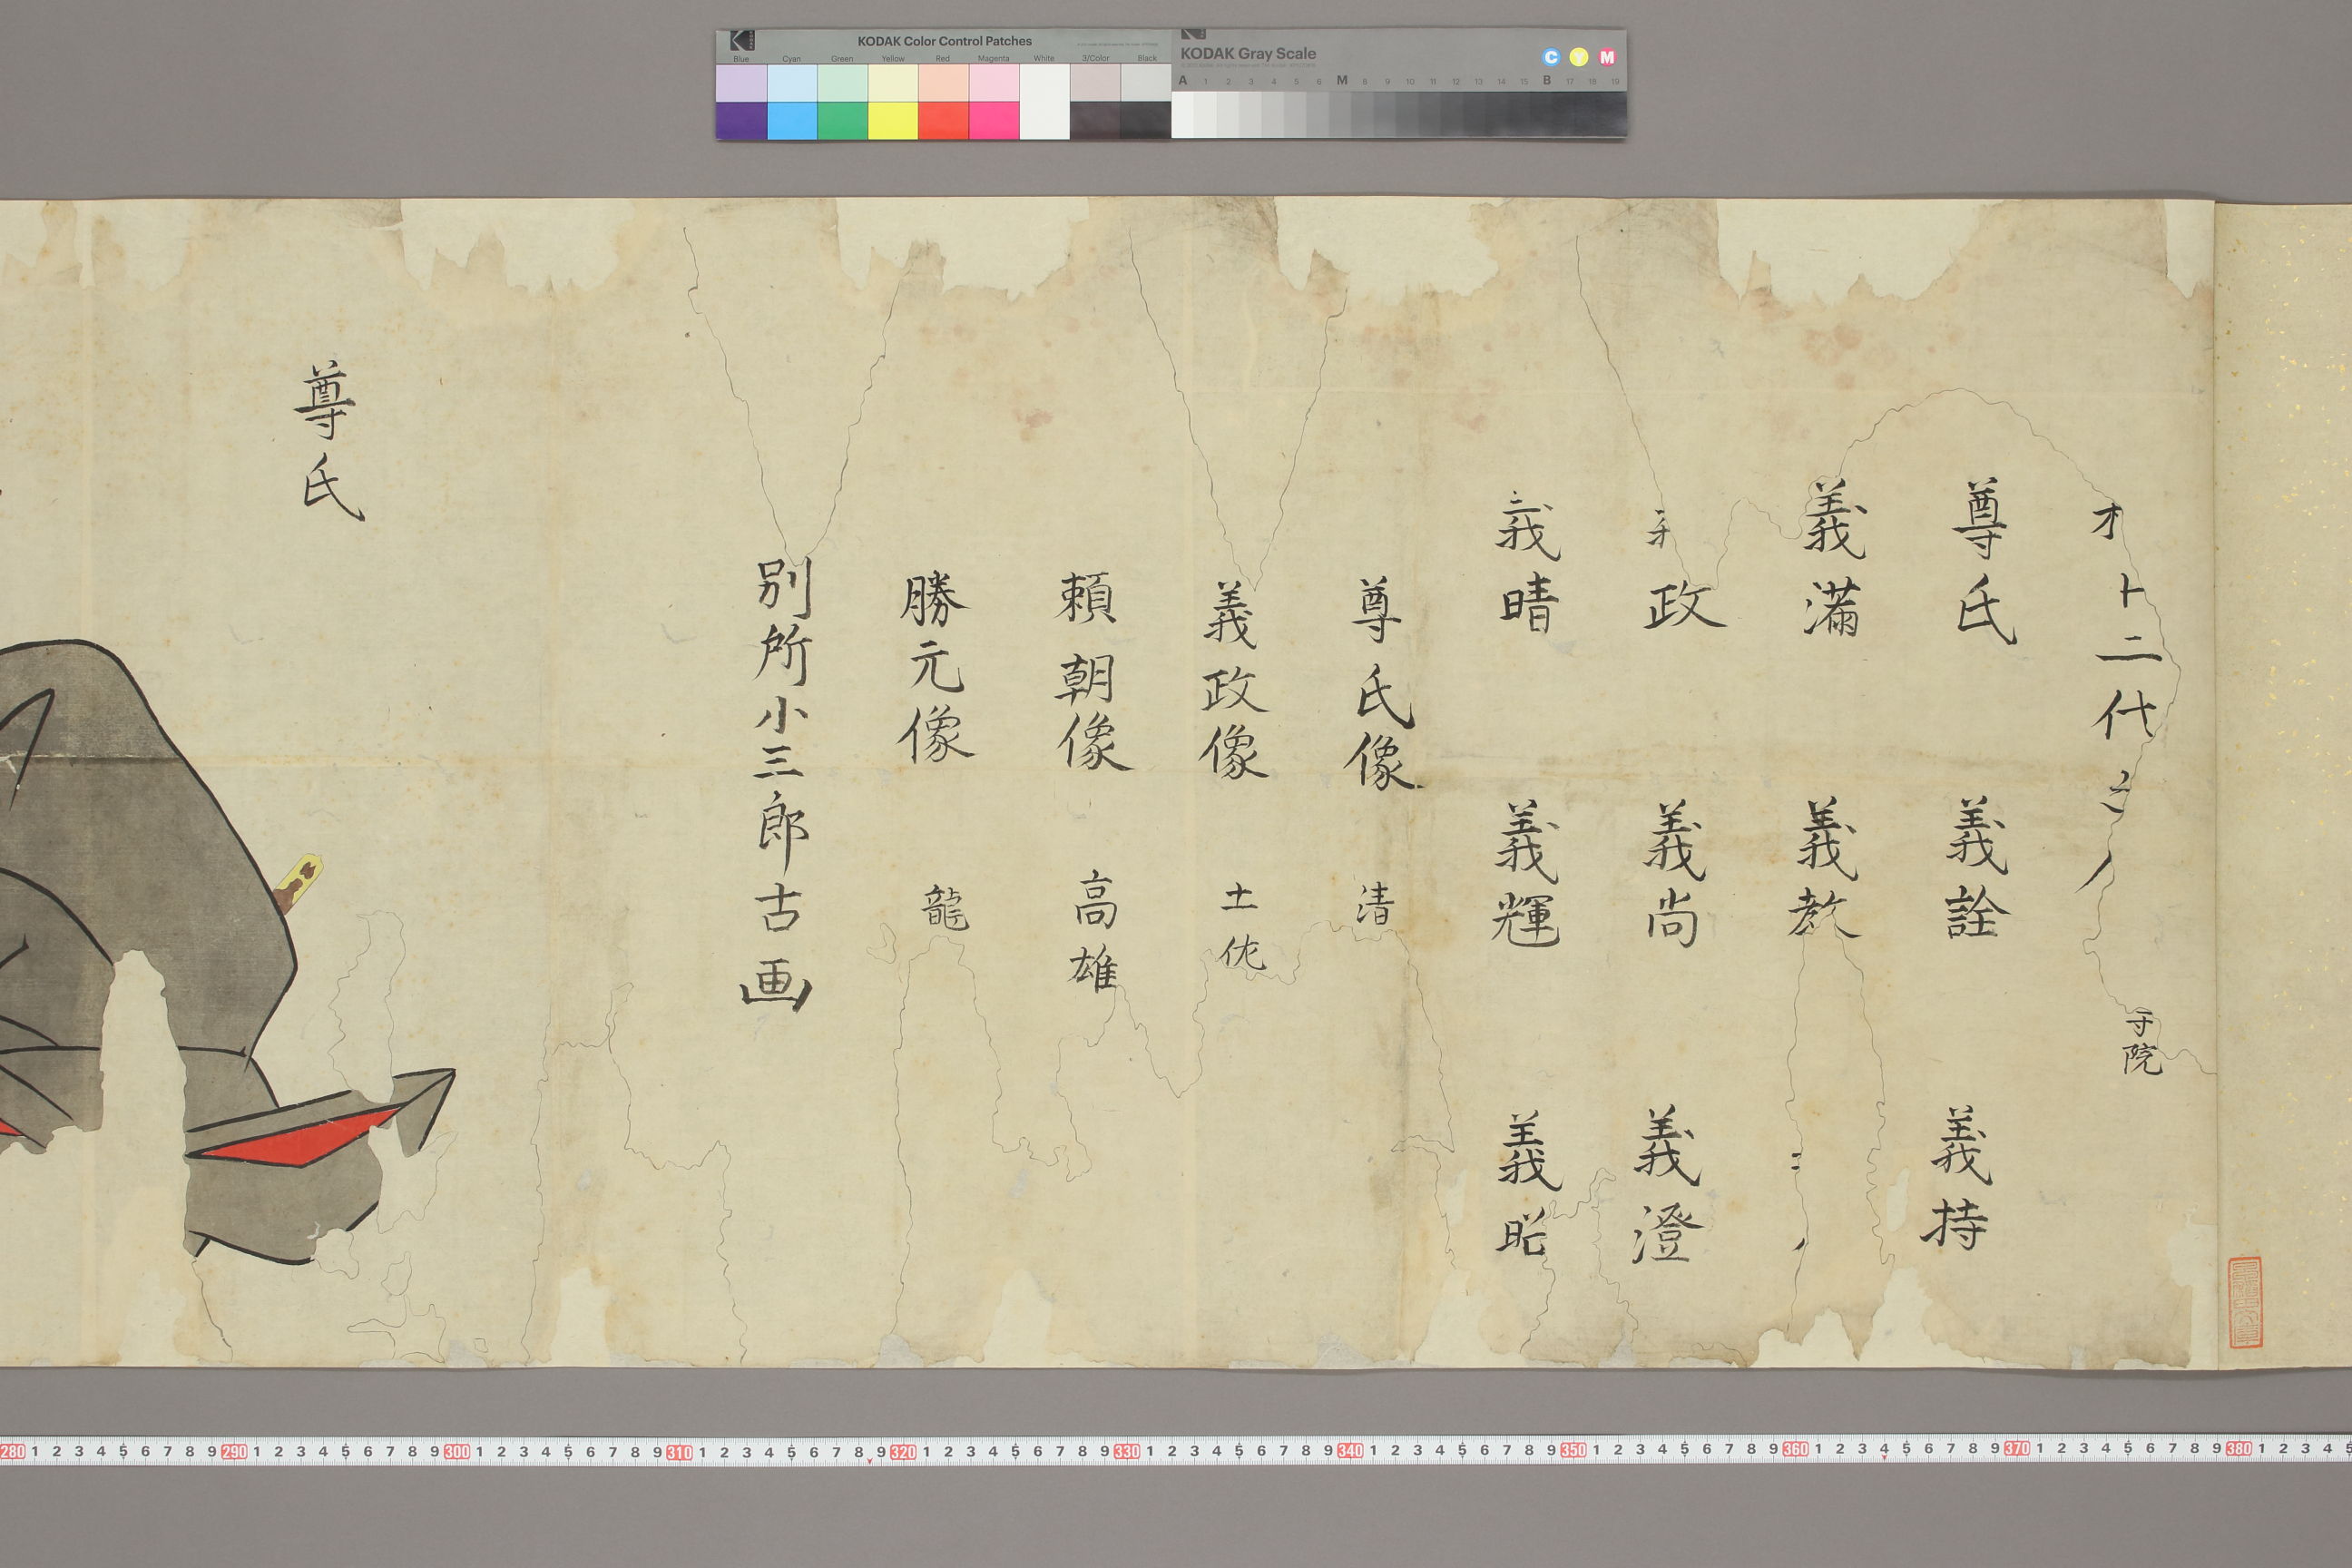 十二代
院
尊氏 義詮 義持
義満 義教
政 義尚 義澄
義晴 義輝 義昭
尊氏像 清
義政像 土佐
頼朝像 高雄
勝元像 龍
別所小三郎古画
尊氏
KODAK Color Control Patches
Blue Cyan Green Yellow Red Magenta White 3/Color Black
KODAK Gray Scale
C Y M
A 1 2 3 4 5 6 M 8 9 10 11 12 13 14 15 B 17 18 19
280 1 2 3 4 5 6 7 8 9 290 1 2 3 4 5 6 7 8 9 300 1 2 3 4 5 6 7 8 9 310 1 2 3 4 5 6 7 8 9 320 1 2 3 4 5 6 7 8 9 330 1 2 3 4 5 6 7 8 9 340 1 2 3 4 5 6 7 8 9 350 1 2 3 4 5 6 7 8 9 360 1 2 3 4 5 6 7 8 9 370 1 2 3 4 5 6 7 8 9 380 1 2 3 4